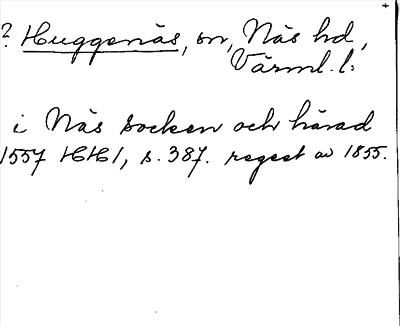 ? Huggenäs, sn, Näs hd,
Värml. l:
i Näs socken och härad
1557 HH 1, s. 387. regest av 1855.